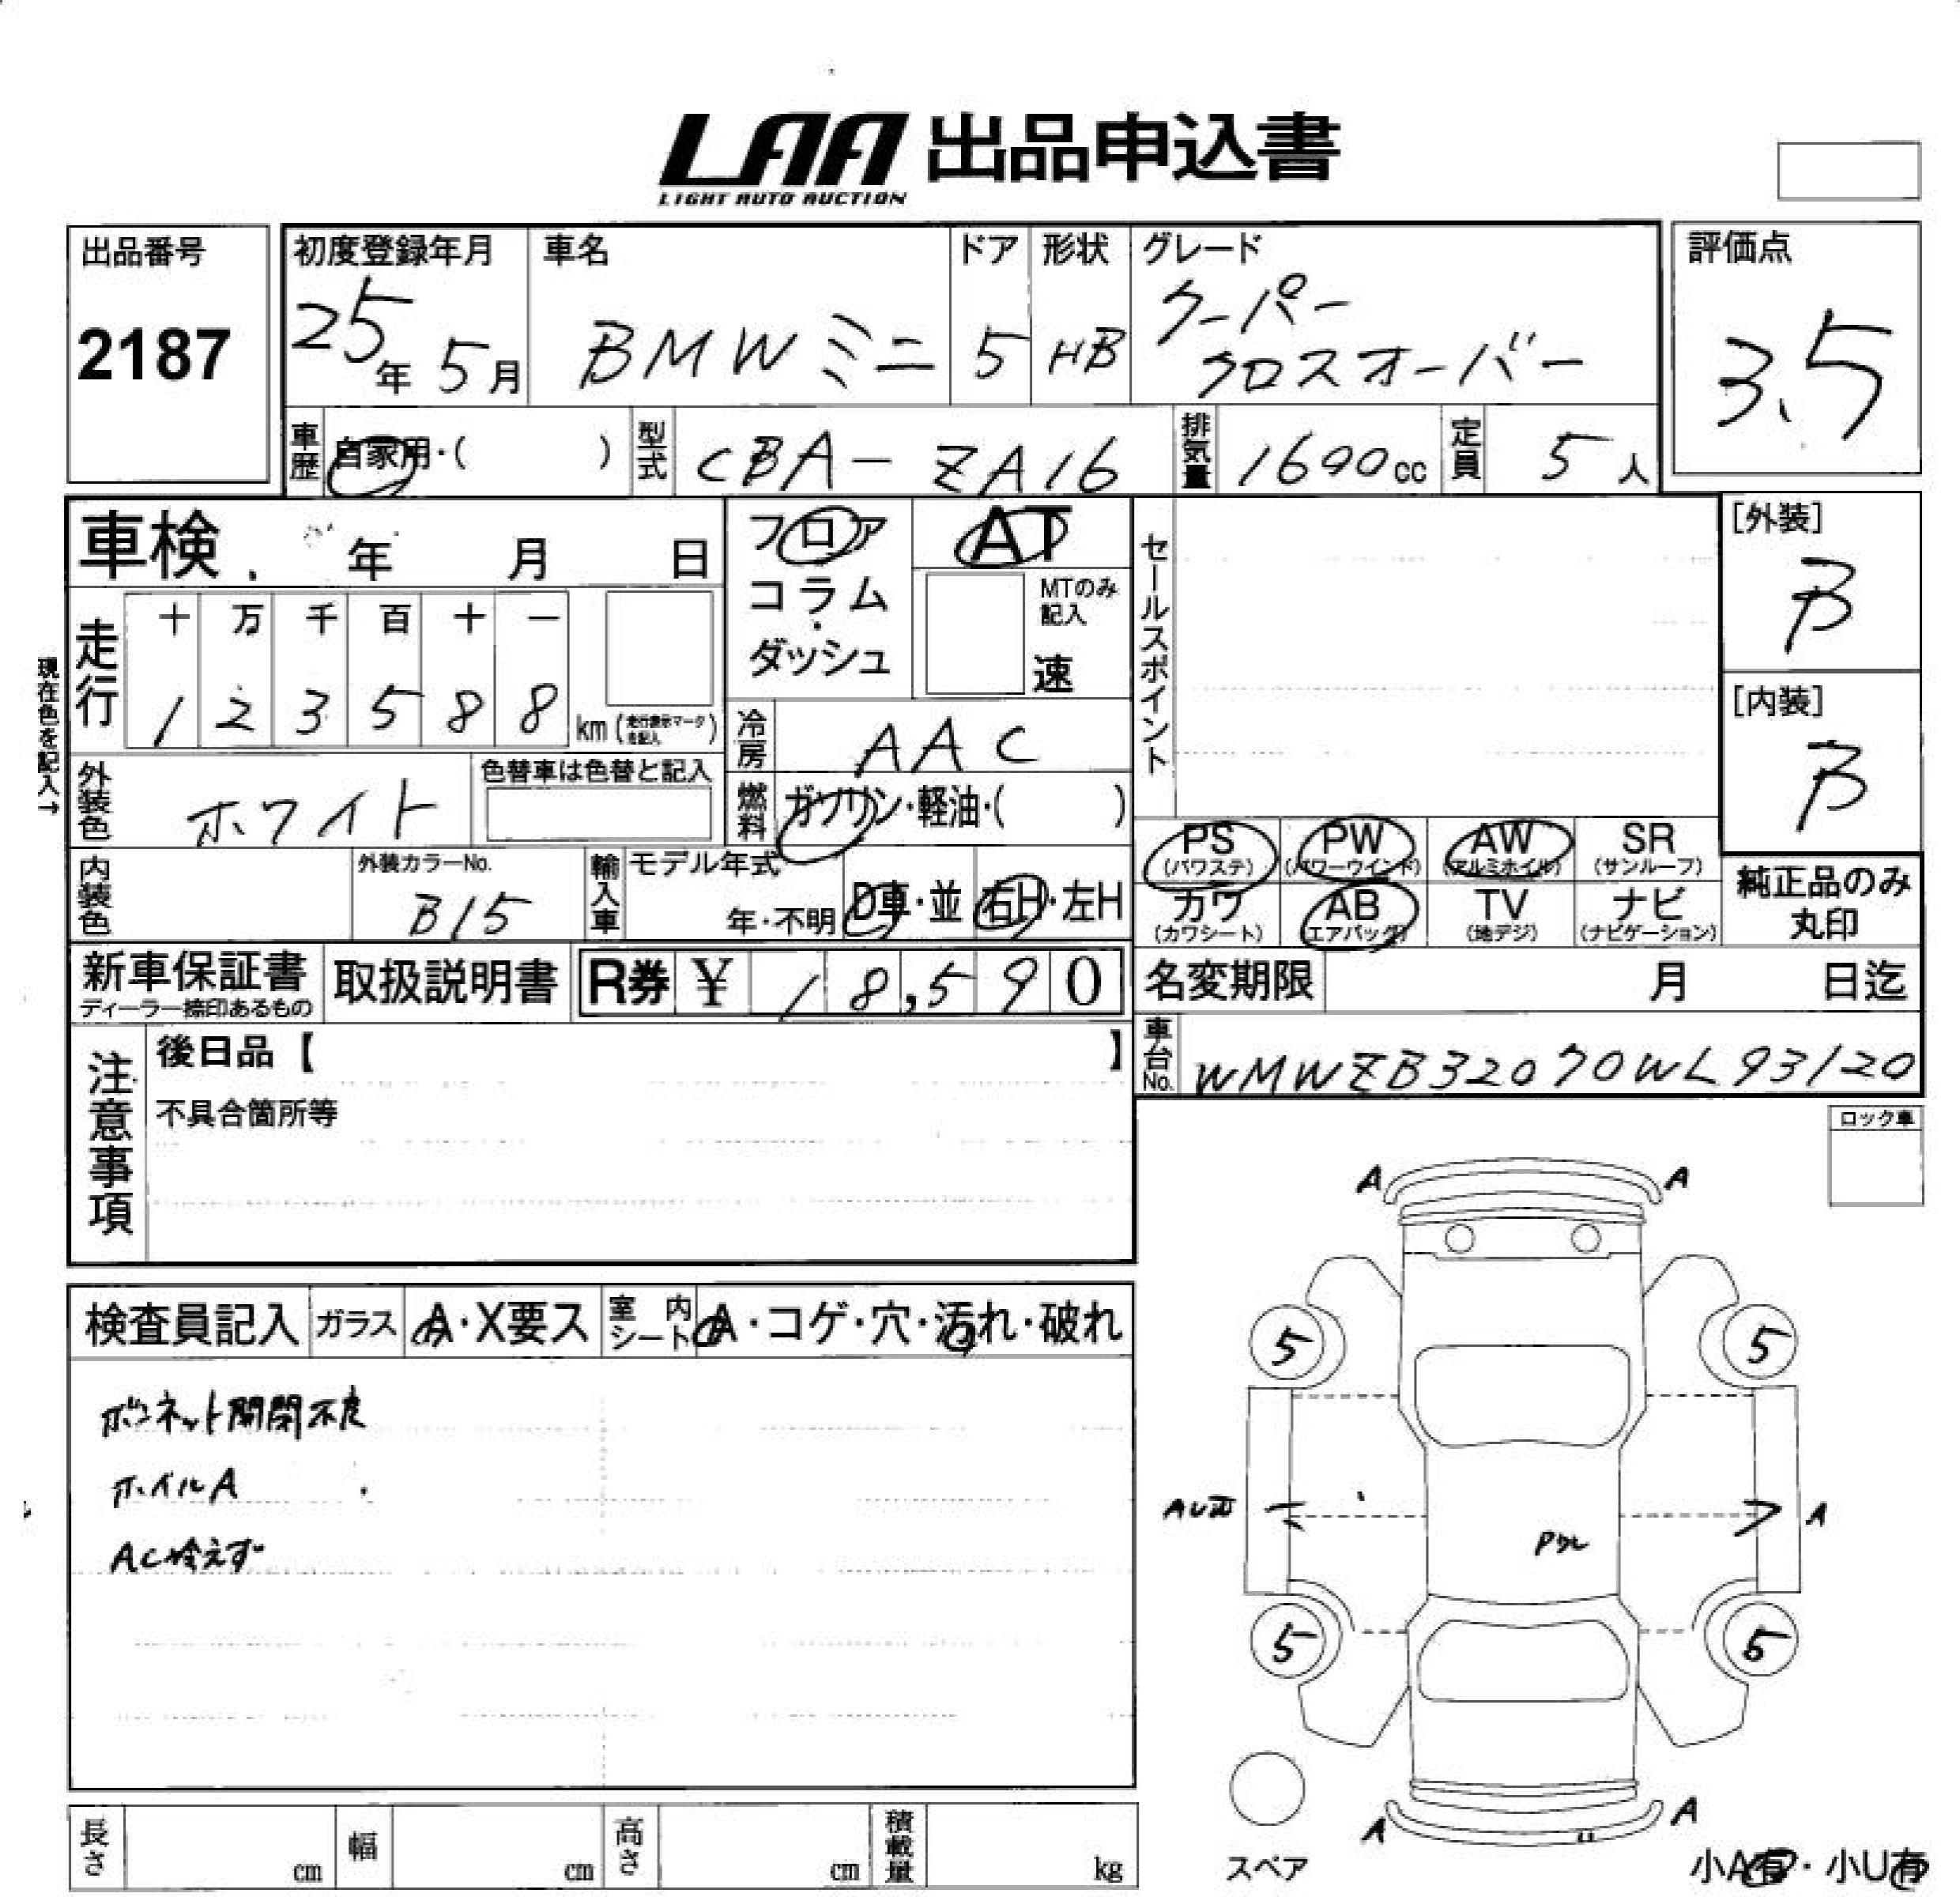 LAA 出品申込書
LIGHT AUTO AUCTION
出品番号
2187
初度登録年月
25年 5月
車名
BMWミニ
ドア
5
形状
HB
グレード
クーパー
クロスオーバー
評価点
3.5
車歴 自家用・( )
型式 CBA-ZA16
排気量 1600cc
定員 5人
車検 年 月 日
フロア
コラム
ダッシュ
AT
MTのみ
記入
速
セールスポイント
[外装]
B
[内装]
B
現在色を記入→
走行
十 万 千 百 十 一
1 2 3 5 8 8 km (走行表示マーク を記入)
冷房 AAC
外装色 ホワイト
色替車は色替と記入
燃料 ガソリン・軽油・( )
内装色
外装カラーNo.
B15
輸入車
モデル年式
年・不明
D車・並
右H・左H
PS (パワステ)
PW (パワーウインド)
AW (アルミホイル)
SR (サンルーフ)
カワ (カワシート)
AB (エアバッグ)
TV (地デジ)
ナビ (ナビゲーション)
純正品のみ
丸印
新車保証書
ディーラー捺印あるもの
取扱説明書
R券 ¥ 18,590
名変期限 月 日迄
車台No. WMWZB32070WL93120
注意事項
後日品【 】
不具合箇所等
ロック車
検査員記入
ガラス A・X要ス
室内シート A・コゲ・穴・汚れ・破れ
ボンネット開閉不良
ホイルA
AC冷えず
A A
5 5
A
5 5
A A
スペア
小A有・小U有
長さ cm
幅 cm
高さ cm
積載量 kg